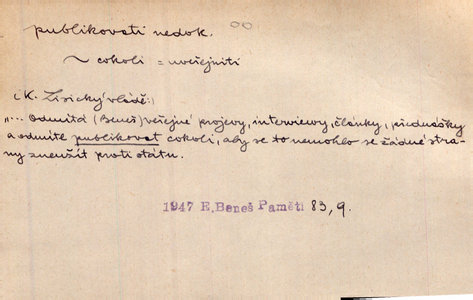 publikovati nedok.
~ cokoli = uveřejniti
(K. Lisický vládě:)
„... Odmítá (Beneš) veřejné projevy, interviewy, články, přednášky
a odmítl publikovat cokoli, aby se to nemohlo se žádné stra-
ny zneužít proti státu.
1947 E. Beneš Paměti 83, 9.